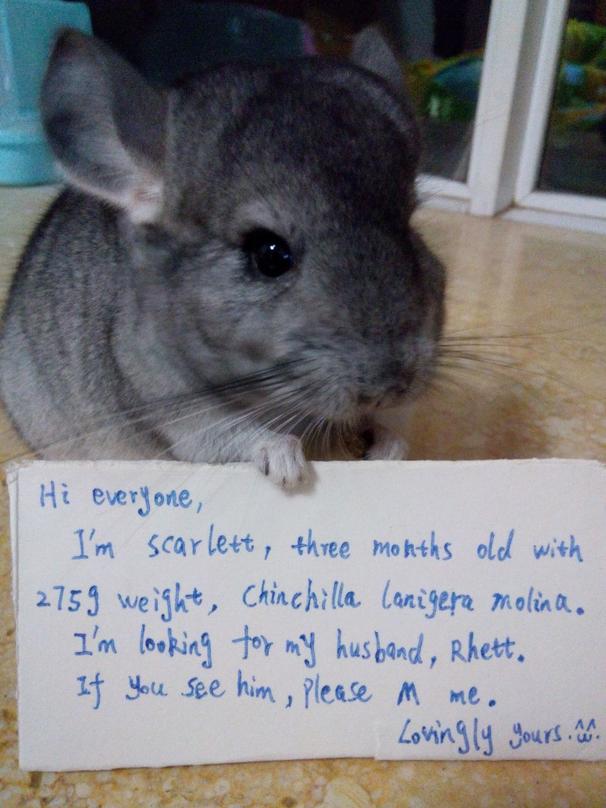 Hi everyone,
I'm scarlett, three months old with
275g weight, Chinchilla lanigera molina.
I'm looking for my husband, Rhett.
If you see him, please M me.
Lovingly yours.